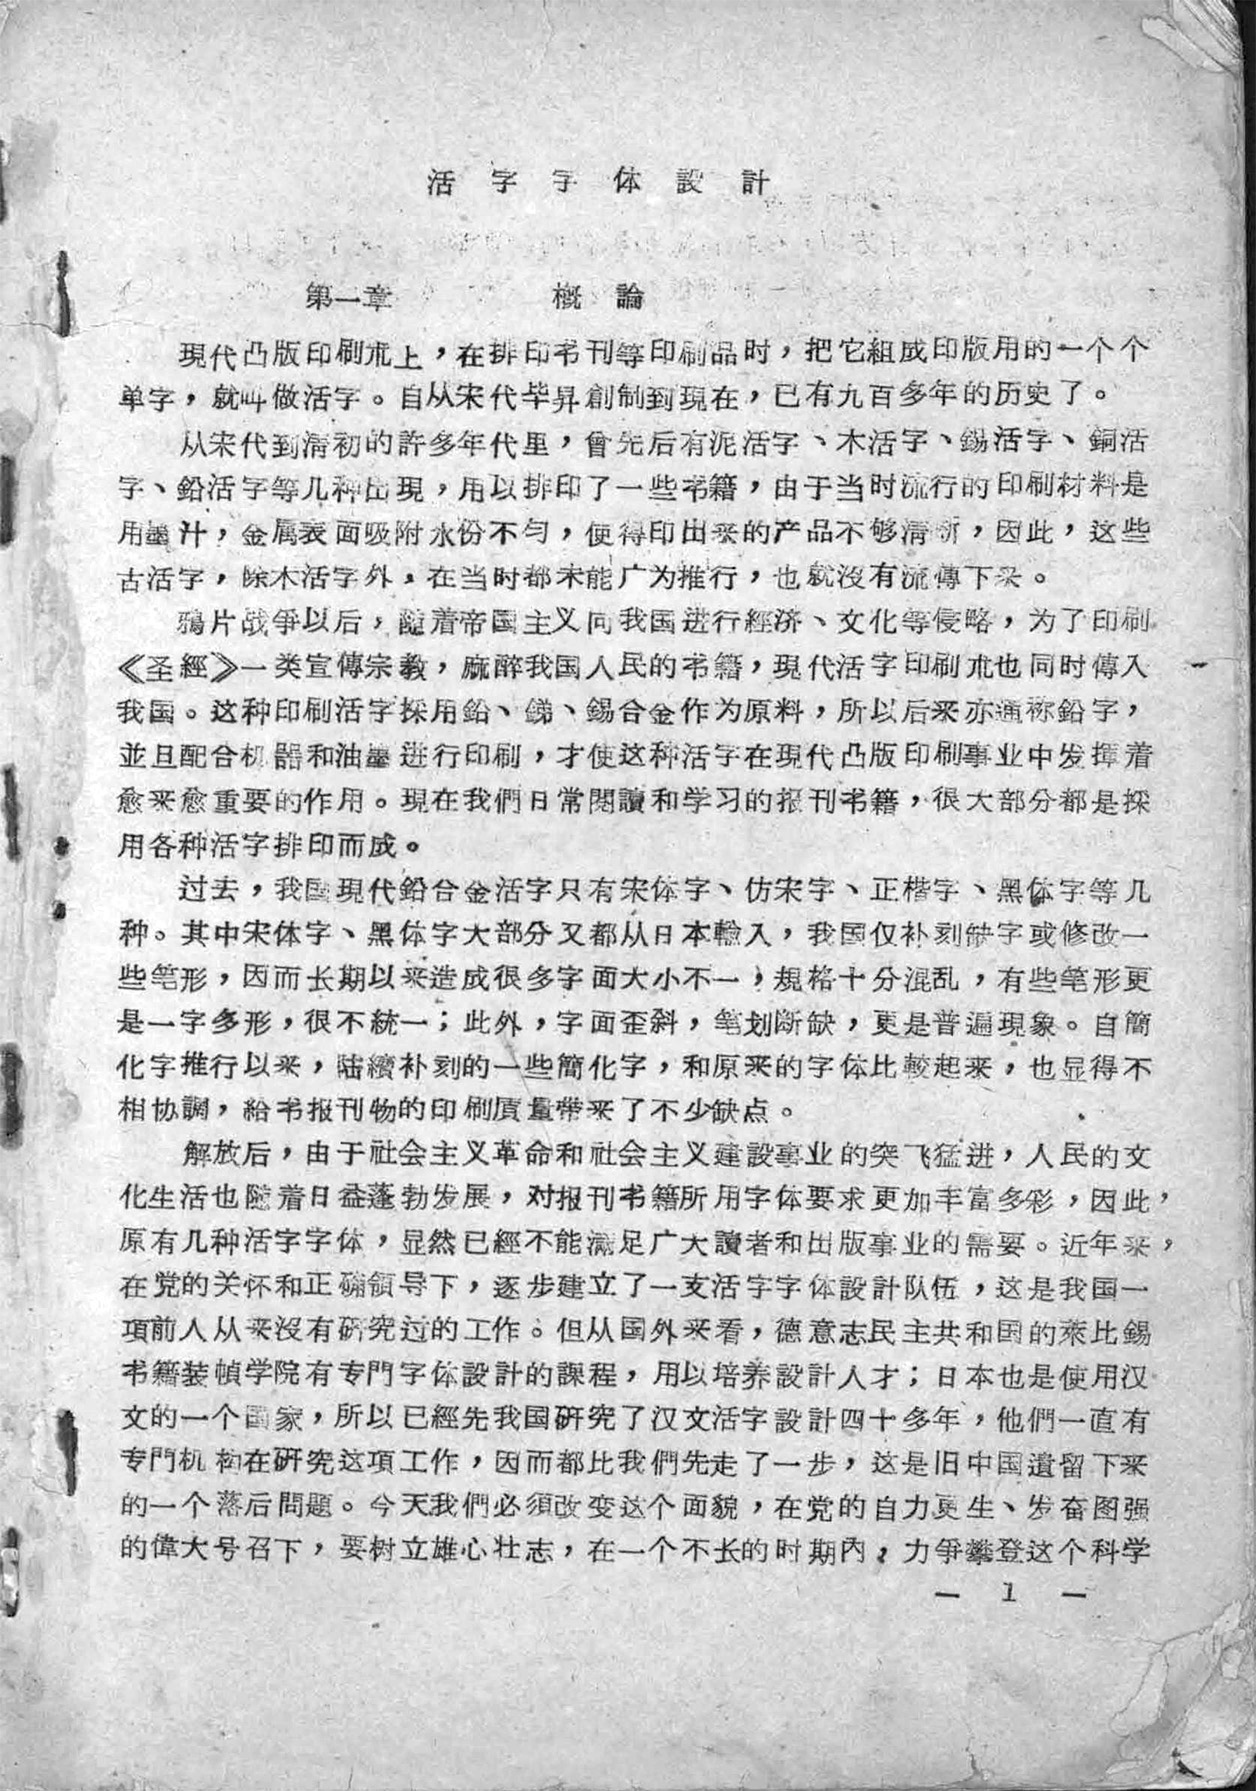 活字字体設計
第一章 概論
現代凸版印刷朮上，在排印书刊等印刷品时，把它組成印版用的一个个
单字，就叫做活字。自从宋代毕昇創制到現在，已有九百多年的历史了。
从宋代到清初的許多年代里，曾先后有泥活字、木活字、錫活字、銅活
字、鉛活字等几种出現，用以排印了一些书籍，由于当时流行的印刷材料是
用墨汁，金属表面吸附水份不匀，使得印出来的产品不够清晰，因此，这些
古活字，除木活字外，在当时都未能广为推行，也就沒有流傳下来。
鴉片战爭以后，随着帝国主义向我国进行經济、文化等侵略，为了印刷
《圣經》一类宣傳宗教，麻醉我国人民的书籍，現代活字印刷朮也同时傳入
我国。这种印刷活字採用鉛、銻、錫合金作为原料，所以后来亦通称鉛字，
並且配合机器和油墨进行印刷，才使这种活字在現代凸版印刷事业中发揮着
愈来愈重要的作用。現在我們日常閱讀和学习的报刊书籍，很大部分都是採
用各种活字排印而成。
过去，我国現代鉛合金活字只有宋体字、仿宋字、正楷字、黑体字等几
种。其中宋体字、黑体字大部分又都从日本輸入，我国仅补刻缺字或修改一
些笔形，因而长期以来造成很多字面大小不一，規格十分混乱，有些笔形更
是一字多形，很不統一；此外，字面歪斜，笔划断缺，更是普遍現象。自簡
化字推行以来，陆續补刻的一些簡化字，和原来的字体比較起来，也显得不
相协調，給书报刊物的印刷质量帶来了不少缺点。
解放后，由于社会主义革命和社会主义建設事业的突飞猛进，人民的文
化生活也随着日益蓬勃发展，对报刊书籍所用字体要求更加丰富多彩，因此，
原有几种活字字体，显然已經不能滿足广大讀者和出版事业的需要。近年来，
在党的关怀和正确領导下，逐步建立了一支活字字体設計队伍，这是我国一
項前人从来沒有研究过的工作。但从国外来看，德意志民主共和国的萊比錫
书籍装幀学院有专門字体設計的課程，用以培养設計人才；日本也是使用汉
文的一个国家，所以已經先我国研究了汉文活字設計四十多年，他們一直有
专門机构在研究这項工作，因而都比我們先走了一步，这是旧中国遺留下来
的一个落后問題。今天我們必須改变这个面貌，在党的自力更生、发奋图强
的偉大号召下，要树立雄心壮志，在一个不长的时期內，力爭攀登这个科学
— 1 —